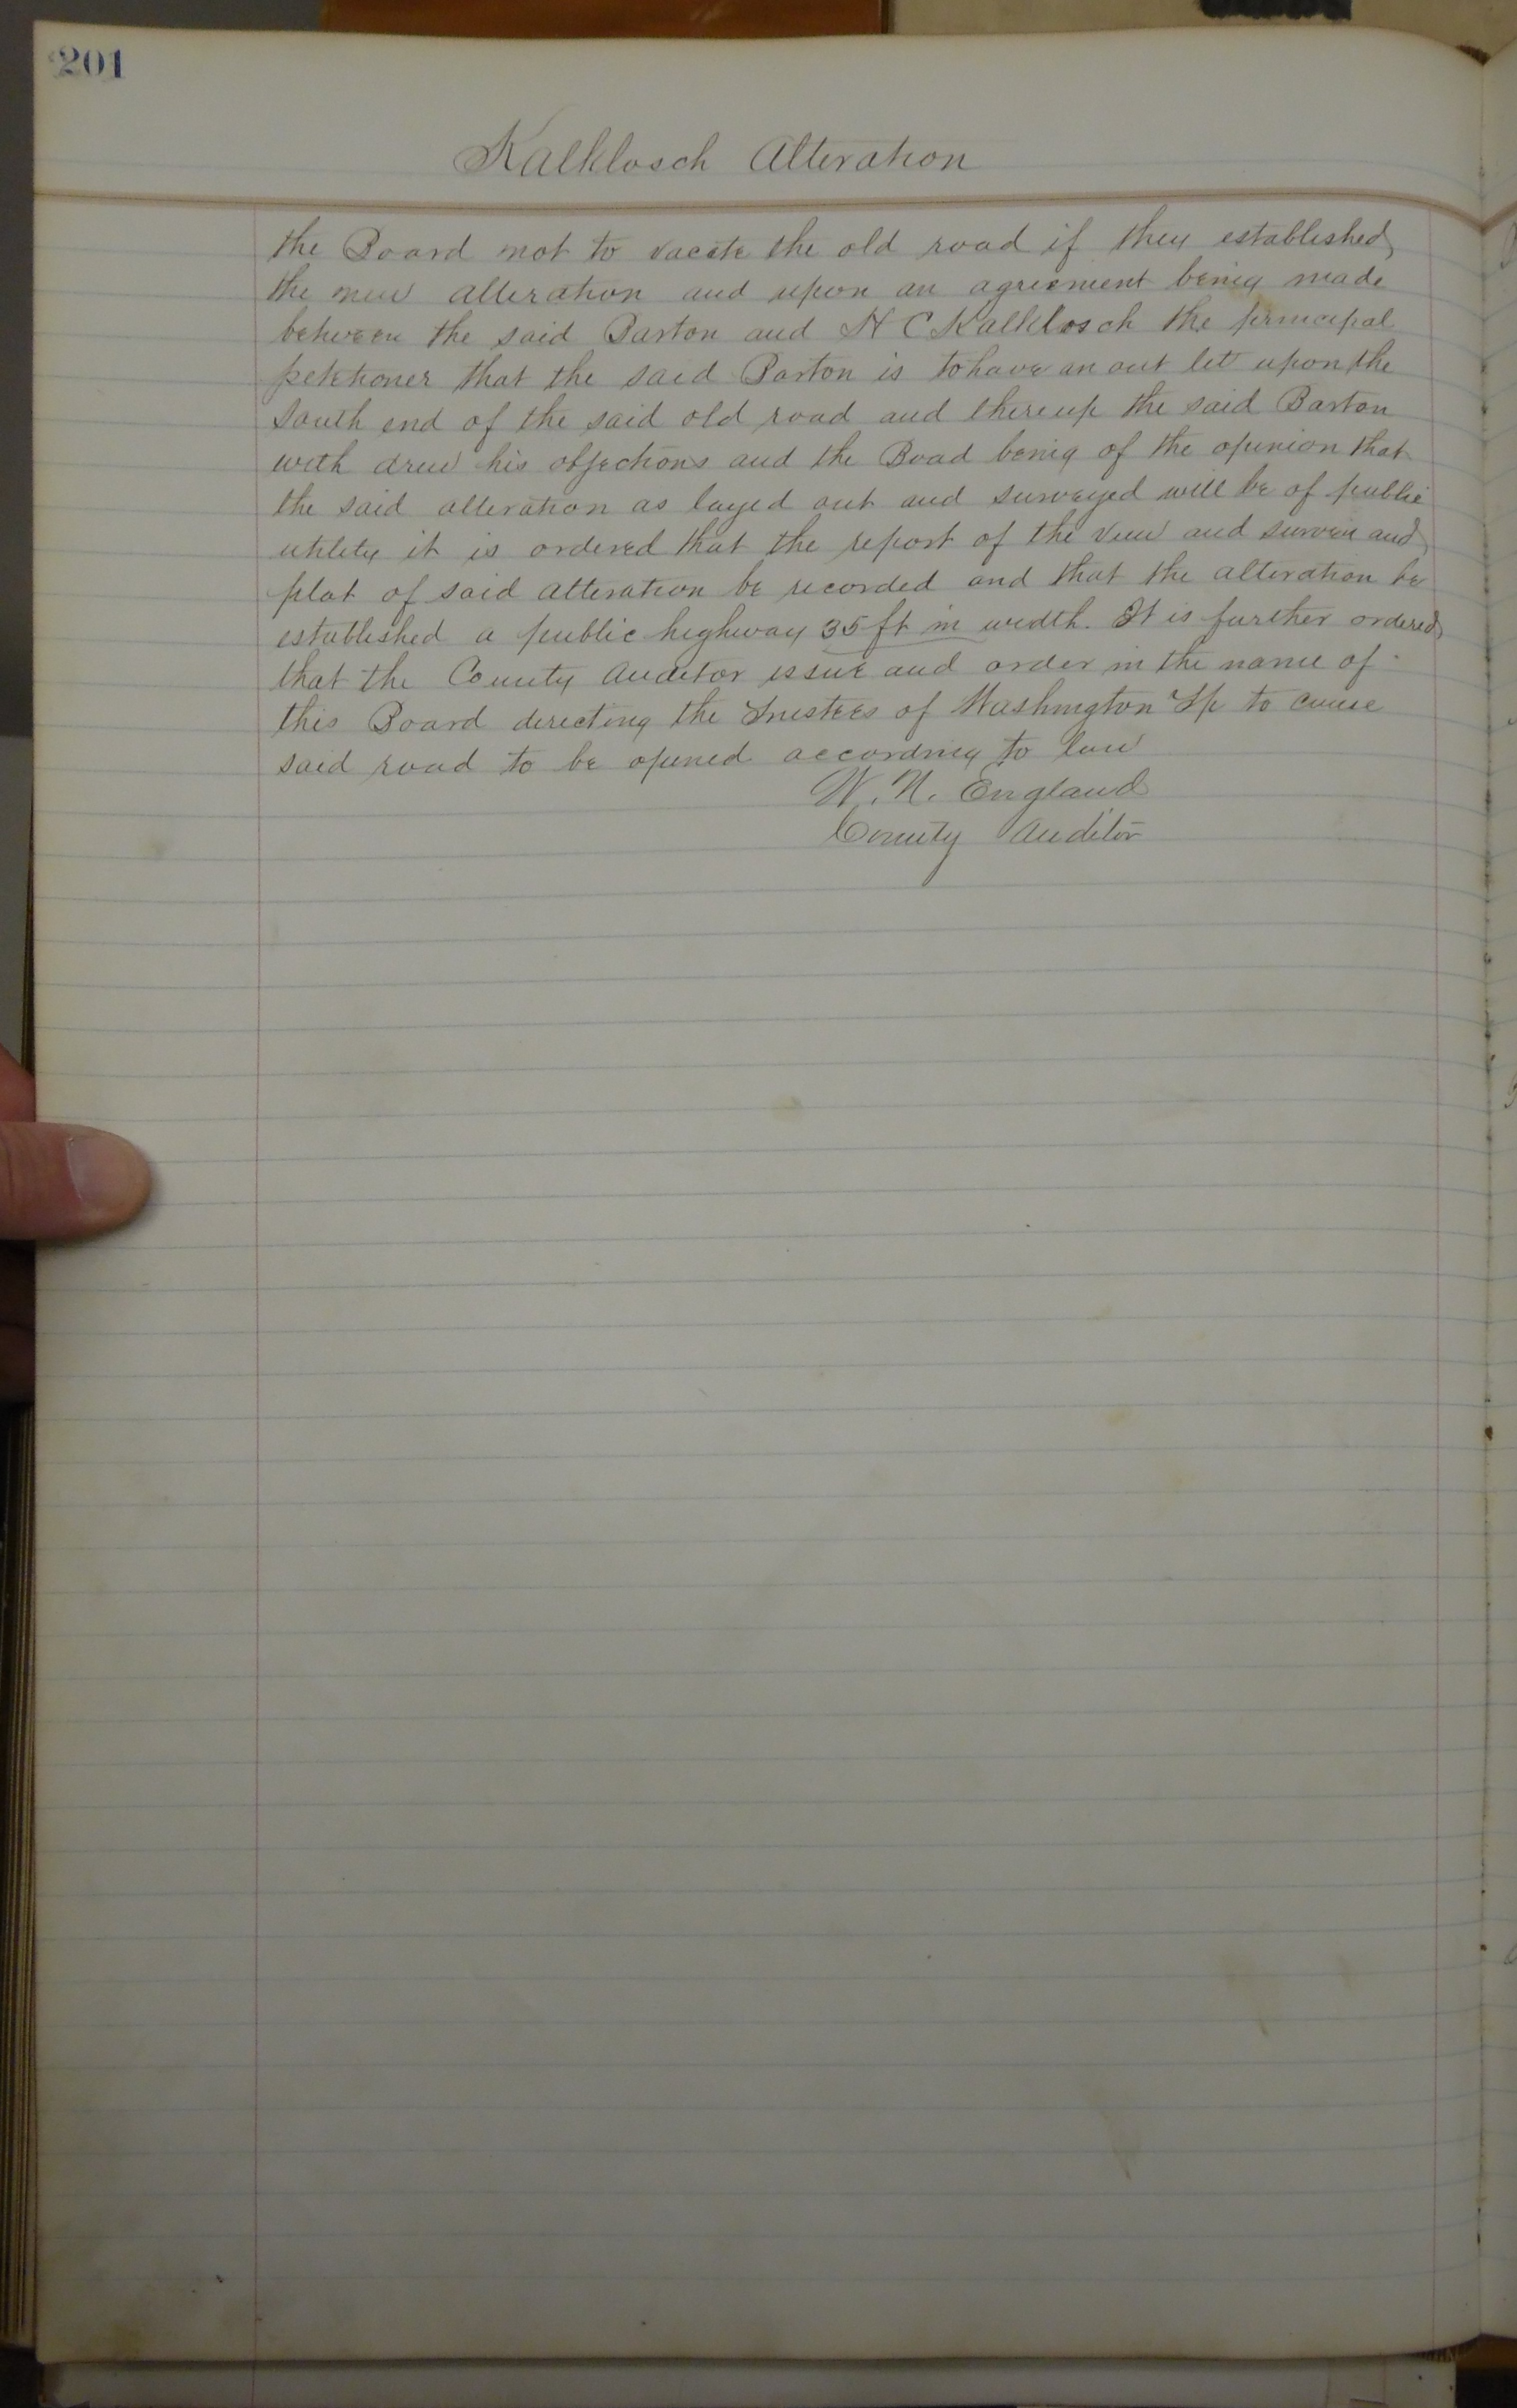 201
Kalklosch Alteration
the Board not to vacate the old road if they established
the new alteration and upon an agreement being made
between the said Barton and H C Kalklosch the principal
petetioner that the said Barton is to have an out let upon the
South end of the said old road and thereup the said Barton
with drew his objections and the Boad being of the openion that
the said alteration as layed out and surveyed will be of public
utility it is ordered that the report of the view and survey and
plat of said alteration be recorded and that the alteration be
established a public highway 35 ft in width. It is further ordered
that the County Auditor issue and order in the name of
this Board directing the Trustees of Washington Tp to cause
said road to be opened according to law
W. N. England
County Auditor